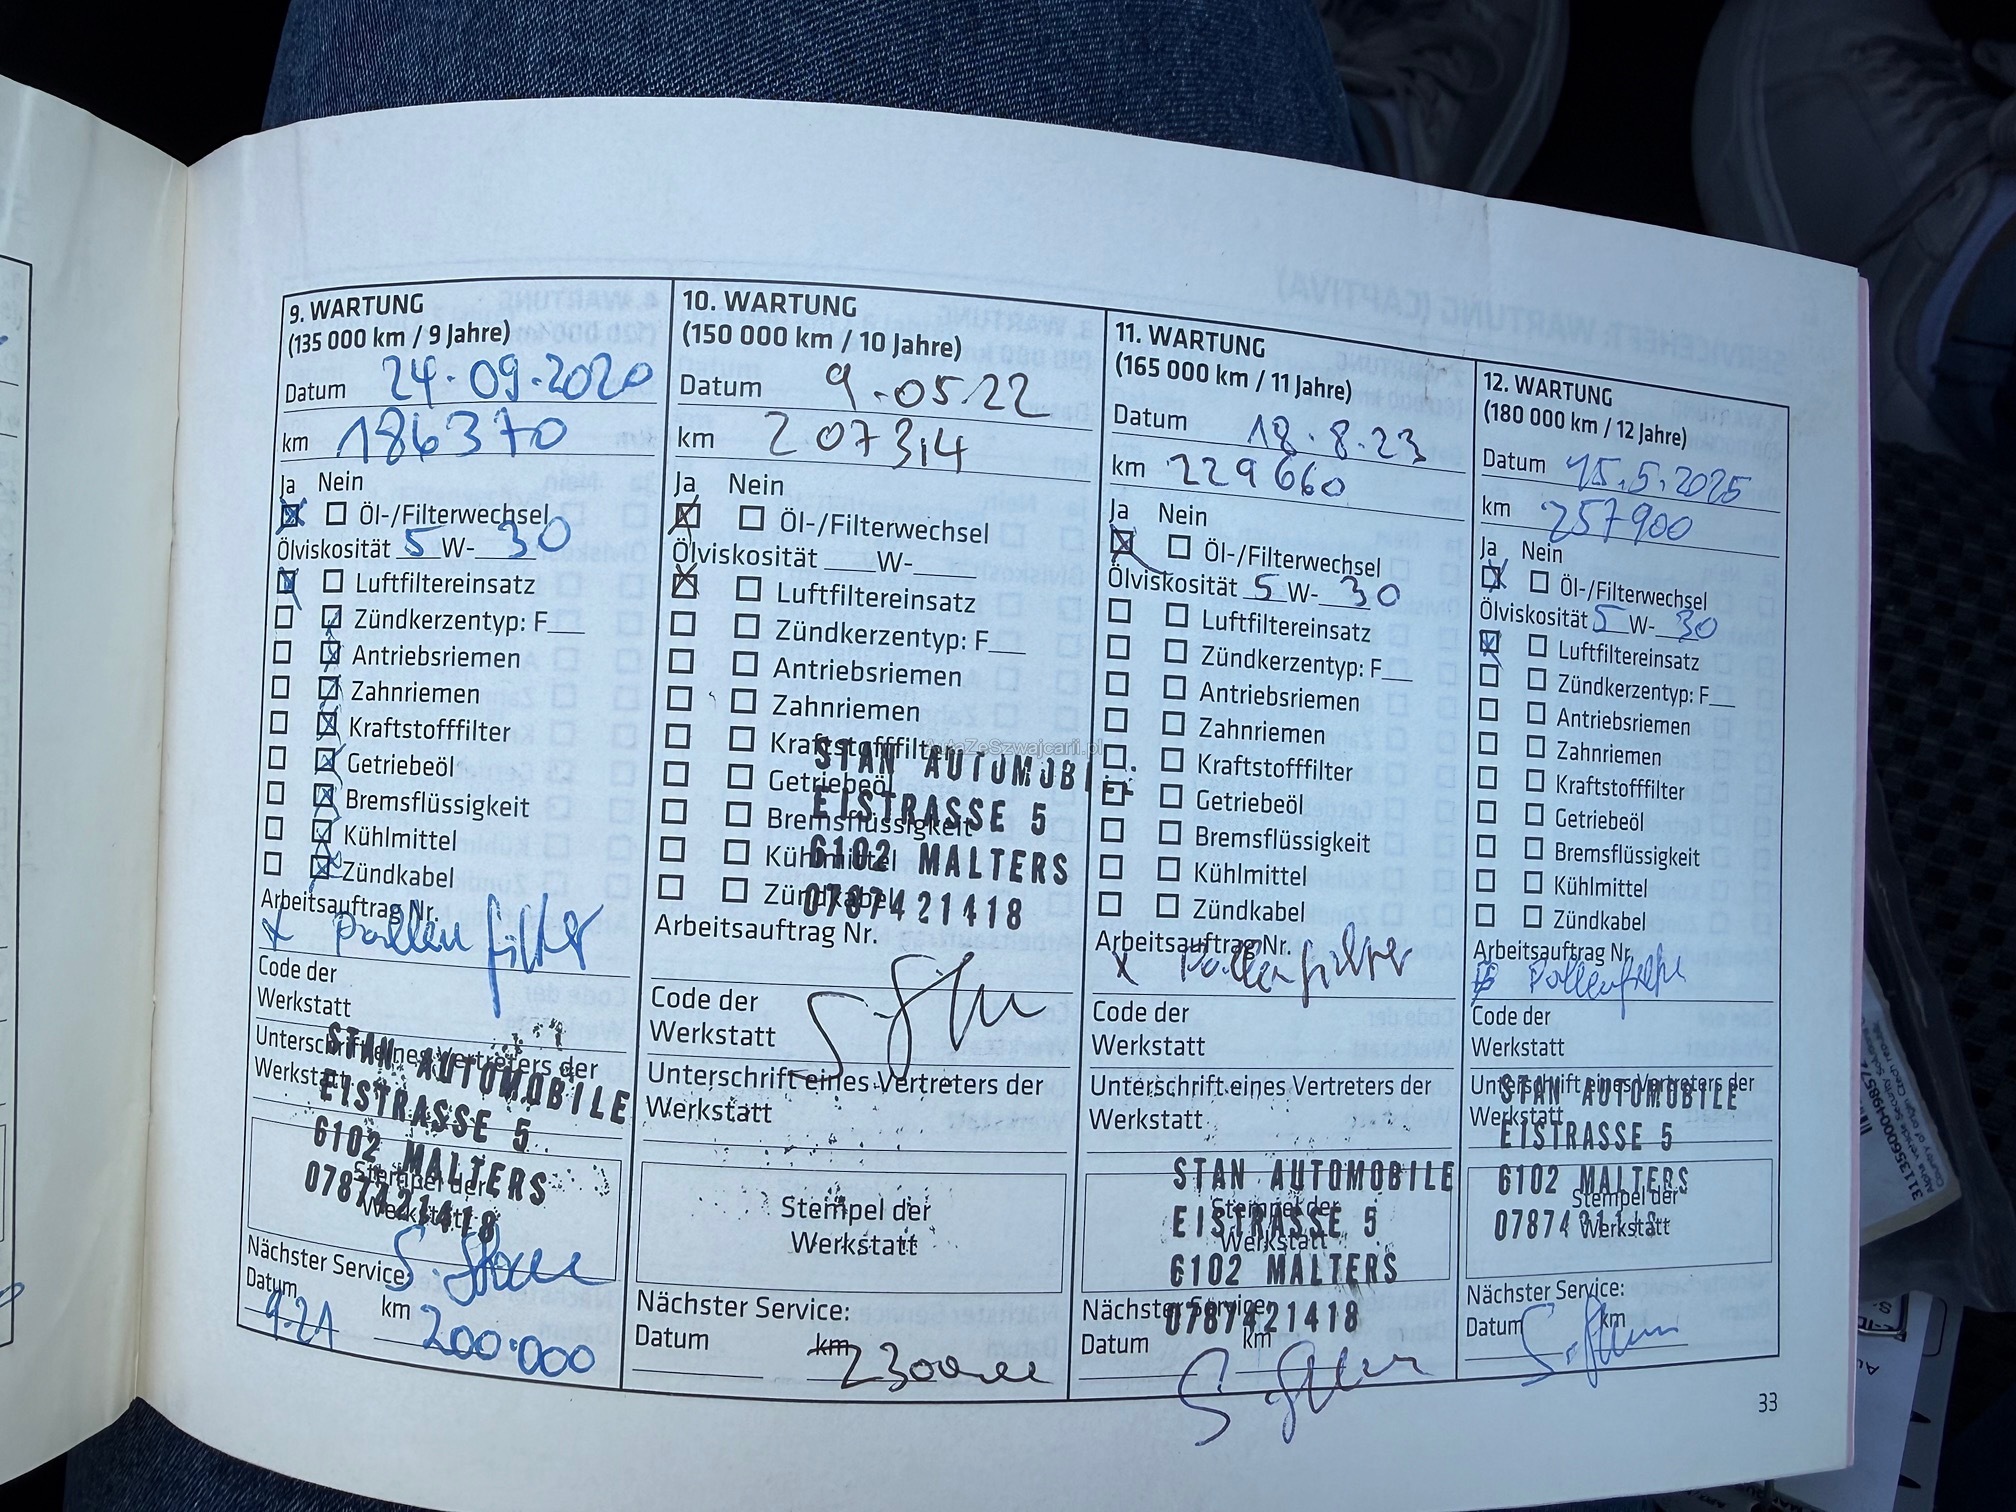 9. WARTUNG
(135 000 km / 9 Jahre)
Datum 24.09.2020
km 186370
Ja Nein
Öl-/Filterwechsel
Ölviskosität 5 W- 30
Luftfiltereinsatz
Zündkerzentyp: F__
Antriebsriemen
Zahnriemen
Kraftstofffilter
Getriebeöl
Bremsflüssigkeit
Kühlmittel
Zündkabel
Arbeitsauftrag Nr.
x Pollenfilter
Code der
Werkstatt
Unterschrift eines Vertreters der
Werkstatt
STAN AUTOMOBILE
EISTRASSE 5
6102 MALTERS
0787421418
Stempel der
Werkstatt
Nächster Service:
Datum 9.21 km 200.000
10. WARTUNG
(150 000 km / 10 Jahre)
Datum 9.05.22
km 207314
Ja Nein
Öl-/Filterwechsel
Ölviskosität ___W-___
Luftfiltereinsatz
Zündkerzentyp: F__
Antriebsriemen
Zahnriemen
Kraftstofffilter
Getriebeöl
Bremsflüssigkeit
Kühlmittel
Zündkabel
STAN AUTOMOBILE
EISTRASSE 5
6102 MALTERS
0787421418
Arbeitsauftrag Nr.
Code der
Werkstatt
Unterschrift eines Vertreters der
Werkstatt
Stempel der
Werkstatt
Nächster Service:
Datum km
11. WARTUNG
(165 000 km / 11 Jahre)
Datum 18.8.23
km 229660
Ja Nein
Öl-/Filterwechsel
Ölviskosität 5 W- 30
Luftfiltereinsatz
Zündkerzentyp: F__
Antriebsriemen
Zahnriemen
Kraftstofffilter
Getriebeöl
Bremsflüssigkeit
Kühlmittel
Zündkabel
Arbeitsauftrag Nr.
x Pollenfilter
Code der
Werkstatt
Unterschrift eines Vertreters der
Werkstatt
STAN AUTOMOBILE
EISTRASSE 5
6102 MALTERS
0787421418
Stempel der
Werkstatt
Nächster Service:
Datum km
12. WARTUNG
(180 000 km / 12 Jahre)
Datum 15.5.2025
km 257900
Ja Nein
Öl-/Filterwechsel
Ölviskosität 5 W- 30
Luftfiltereinsatz
Zündkerzentyp: F__
Antriebsriemen
Zahnriemen
Kraftstofffilter
Getriebeöl
Bremsflüssigkeit
Kühlmittel
Zündkabel
Arbeitsauftrag Nr.
Pollenfilter
Code der
Werkstatt
Unterschrift eines Vertreters der
Werkstatt
STAN AUTOMOBILE
EISTRASSE 5
6102 MALTERS
0787421418
Stempel der
Werkstatt
Nächster Service:
Datum km
33
AutaZeSzwajcarii.pl